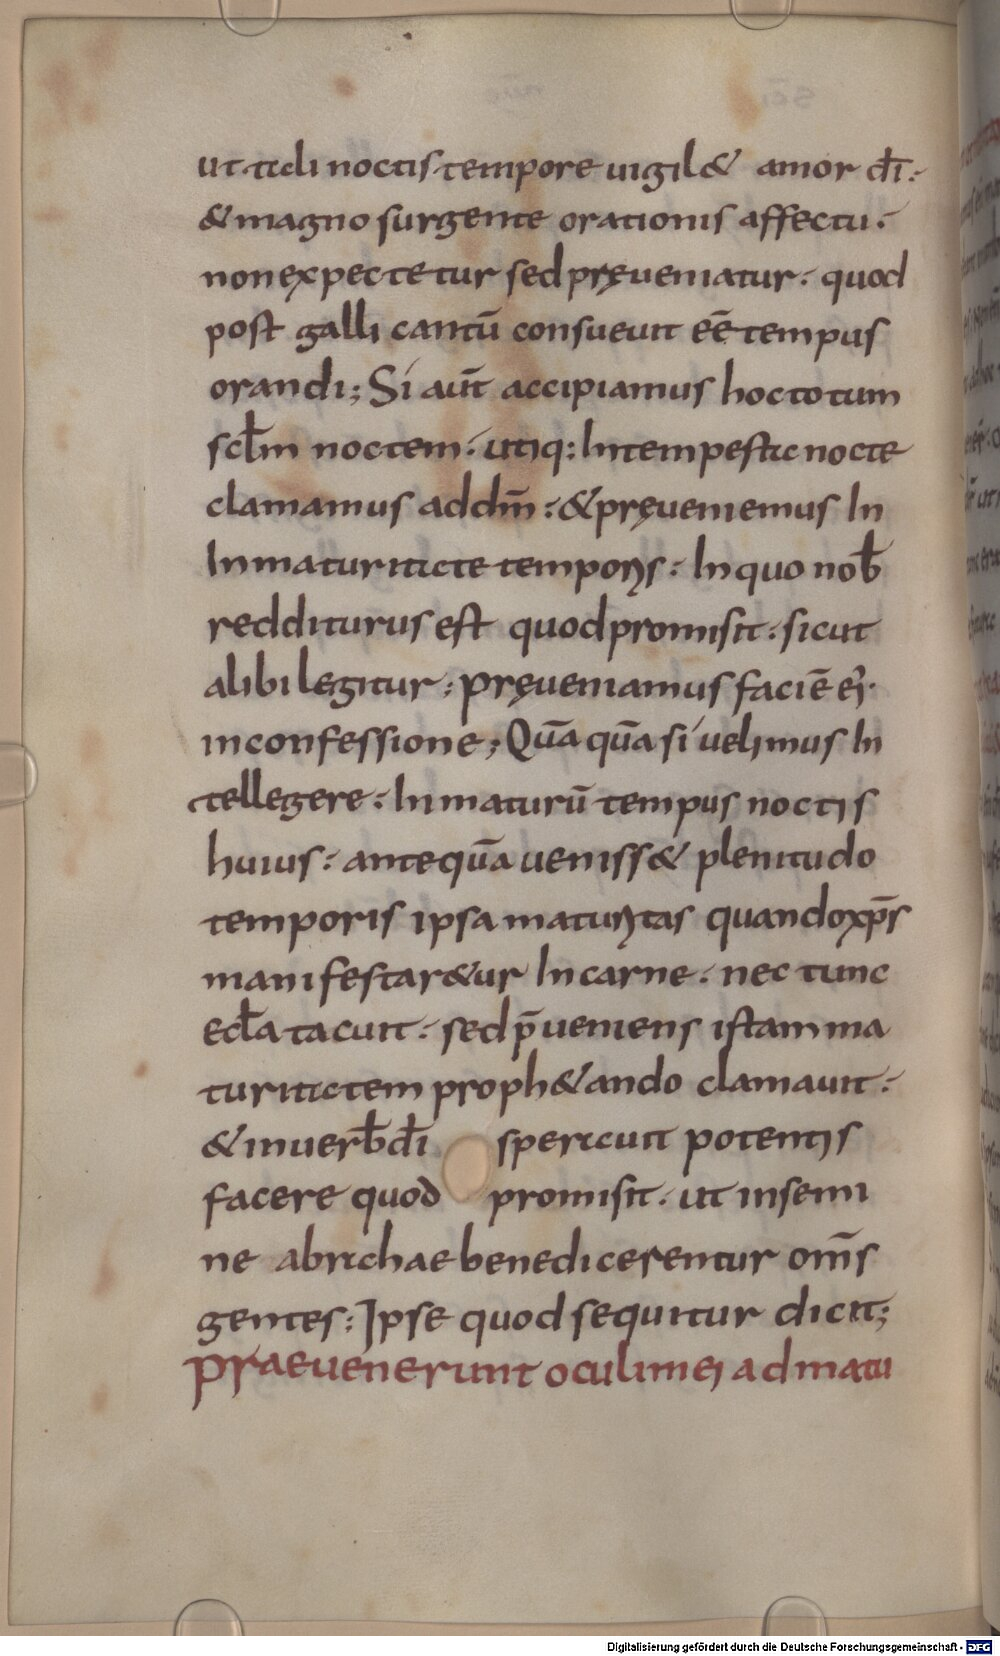 ut tali noctis tempore uigil& amor dī:
& magno surgente orationis affectu.
non expectetur sed pręueniatur: quod
post galli cantū consueuit eē tempus
orandi; Si aūt accipiamus hoc totum
scłm noctem: utiq: Intempesta nocte
clamamus ad dm̄: & pręueniemus In
Inmaturitate temporis: In quo nob̄
redditurus est quod promisit: sicut
alibi legitur: pręueniamus faciē ei.
in confessione; Quā quā si uelimus In
tellegere: Inmaturū tempus noctis
huius: antequā ueniss& plenitudo
temporis ipsa maturitas quando xp̄s
manifestar&ur In carne: nec tunc
eccła tacuit: sed p̄ueniens istam ma
turitatem proph&ando clamauit:
& in uerb̄ dī sperauit potentis
facere quod promisit. ut in semi
ne abrahae benedicerentur om̄s
gentes: Ipse quod sequitur dicit;
Praeuenerunt oculi mei ad matu
Digitalisierung gefördert durch die Deutsche Forschungsgemeinschaft - DFG